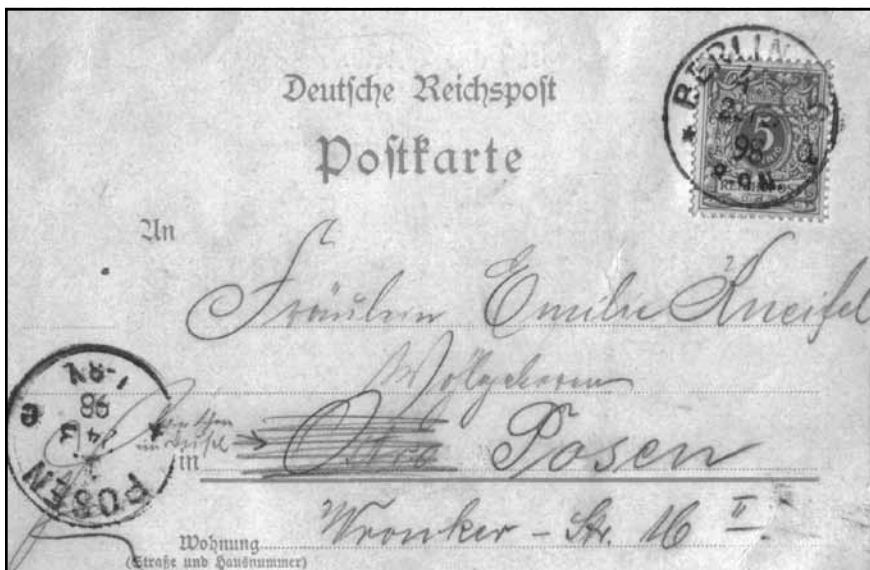 Deutsche Reichspost
Postkarte
BERLIN
98
5
REICHSPOST
An
Fräulein Emilie Kneifel
Wohlgeboren
in Posen
Wronker-Str. 16 II
Wohnung
(Straße und Hausnummer)
POSEN
24 3
98
1-8N